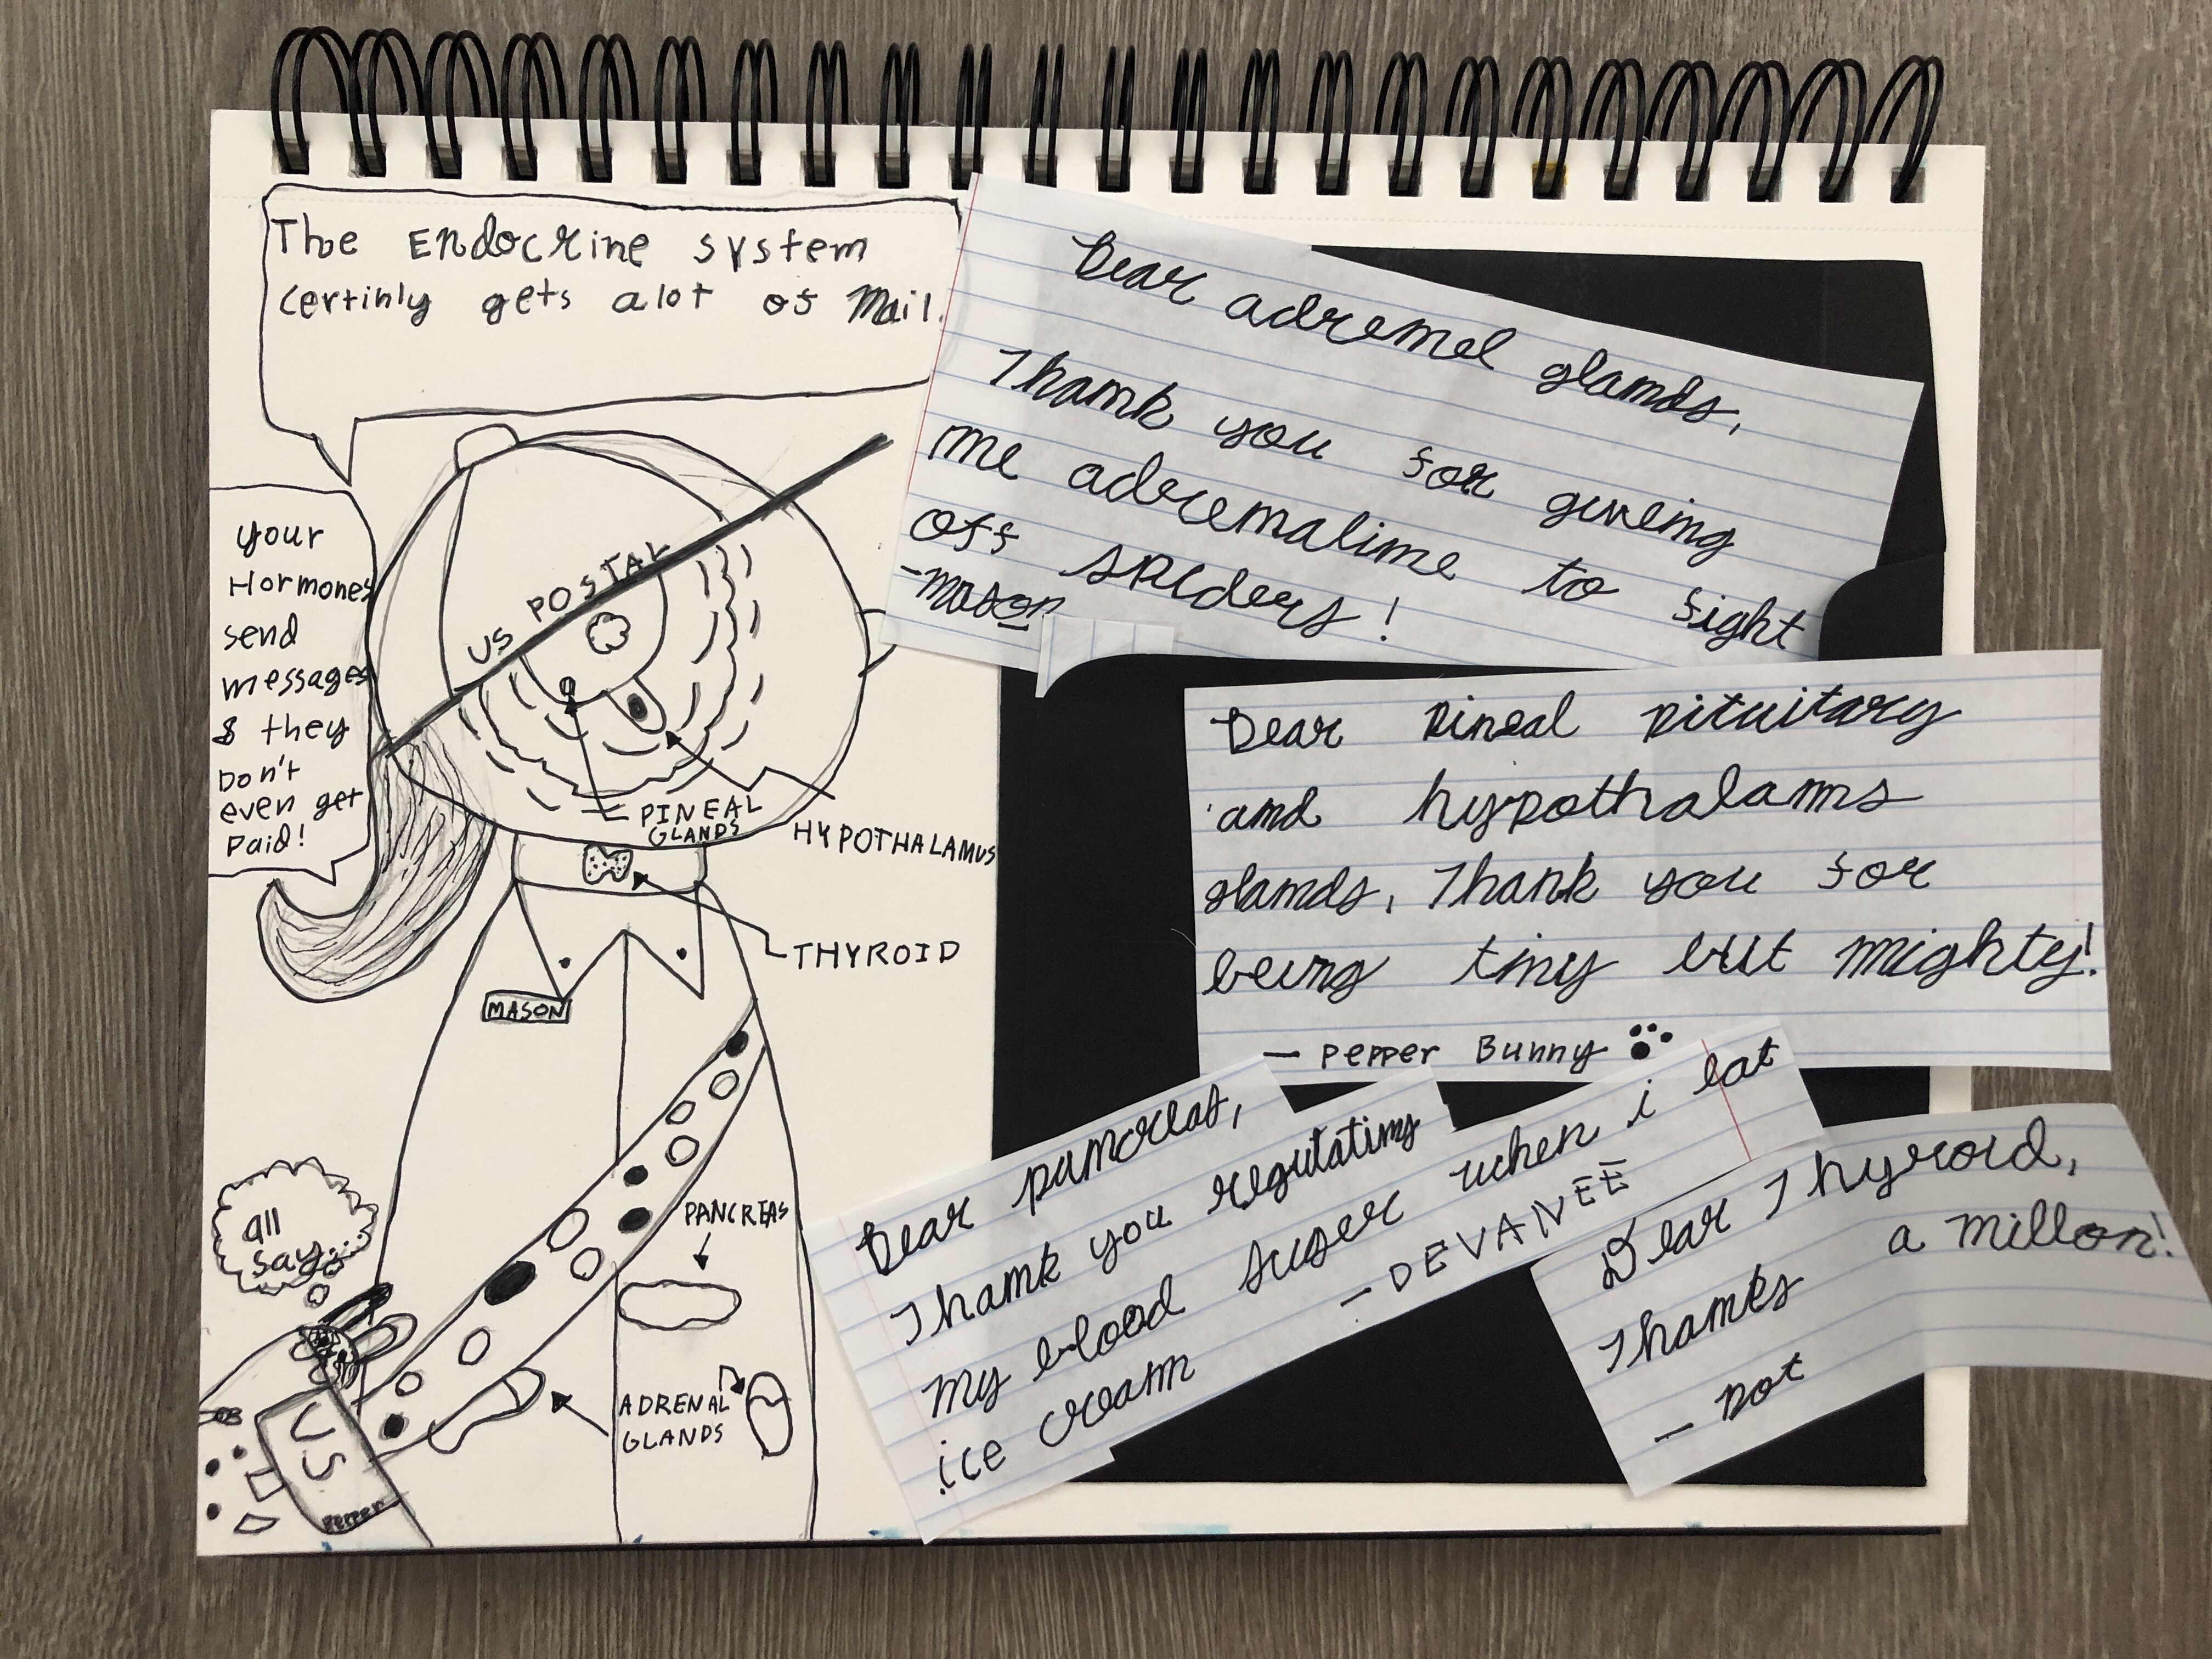 The Endocrine system
certinly gets alot of Mail.
your
Hormones
send
messages
& they
Don't
even get
Paid!
US POSTAL
PINEAL
GLANDS
HYPOTHALAMUS
THYROID
MASON
PANCREAS
ADRENAL
GLANDS
all
say...
US
Pepper
Dear adremel glamds,
Thamk you for giveimg
me adremalime to fight
off spiders!
-Mason
Dear Pineal Pituitary
amd hypothalams
glamds, Thank you for
being tiny but mighty!
- Pepper Bunny
Dear pamcreas,
Thamk you regulatimg
my blood suger when i eat
ice cream
- DEVANEE
Dear Thyroid,
Thamks a millon!
- Dot